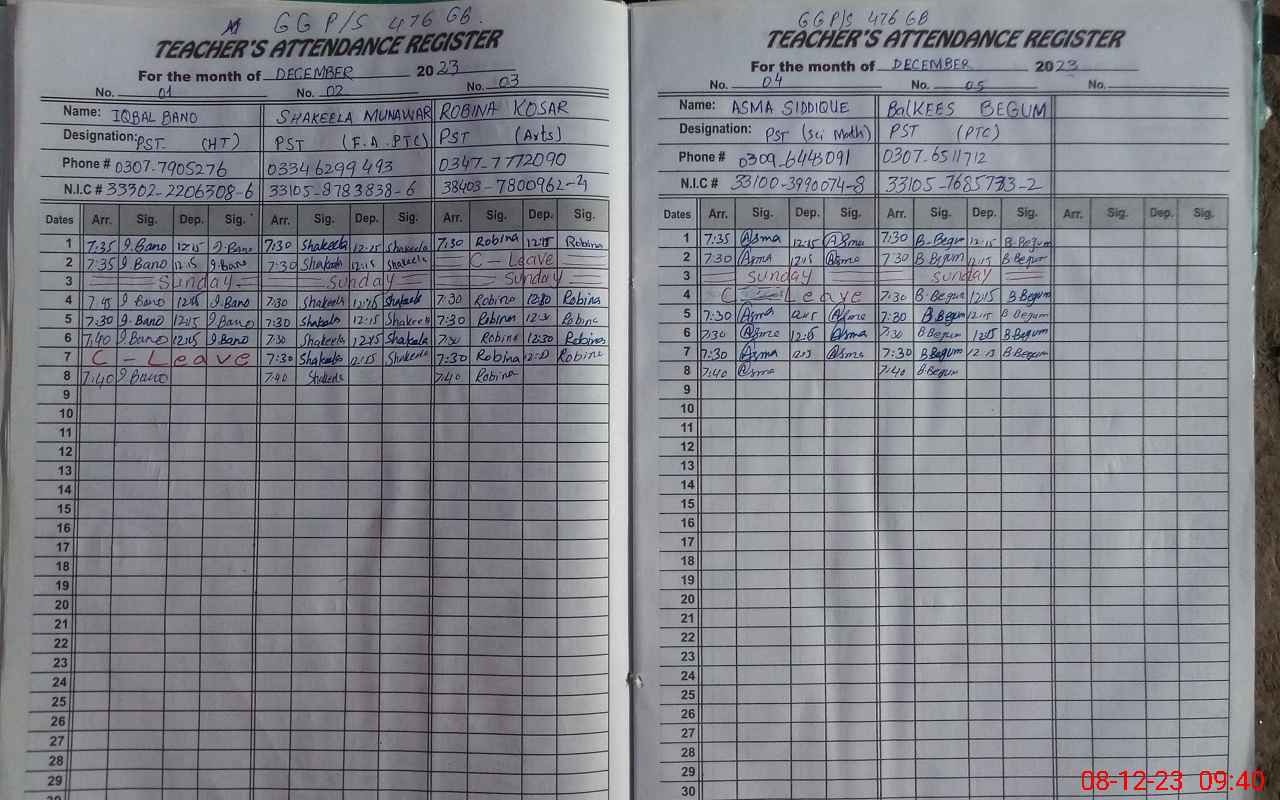 GGP/S 476 GB.
TEACHER'S ATTENDANCE REGISTER
For the month of DECEMBER 2023
No. 01 No. 02 No. 03
Name: IQBAL BANO SHAKEELA MUNAWAR ROBINA KOSAR
Designation: PST. (HT) PST (F.A.PTC) PST (Arts)
Phone # 0307-7905276 03346299493 0347-7772090
N.I.C # 33302-2206308-6 33105-8783838-6 38403-7800962-4
Dates Arr. Sig. Dep. Sig. Arr. Sig. Dep. Sig. Arr. Sig. Dep. Sig.
1 7:35 I.Bano 12:15 I.Bano 7:30 Shakeela 12:15 Shakeela 7:30 Robina 12:15 Robina
2 7:35 I Bano 12:15 I.Bano 7:30 Shakeela 12:15 Shakeela C - Leave
3 Sunday Sunday Sunday
4 7:45 I Bano 12:15 I.Bano 7:30 Shakeela 12:15 Shakeela 7:30 Robina 12:30 Robina
5 7:30 I.Bano 12:15 I Bano 7:30 Shakeela 12:15 Shakeela 7:30 Robina 12:30 Robina
6 7:40 I.Bano 12:15 I.Bano 7:30 Shakeela 12:15 Shakeela 7:30 Robina 12:30 Robina
7 C - Leave 7:30 Shakeela 12:15 Shakeela 7:30 Robina Robina
8 7:40 I Bano 7:40 Shakeela 7:40 Robina
9
10
11
12
13
14
15
16
17
18
19
20
21
22
23
24
25
26
27
28
29
GGP/S 476 GB
TEACHER'S ATTENDANCE REGISTER
For the month of DECEMBER 2023
No. 04 No. 05 No.
Name: ASMA SIDDIQUE BalKEES BEGUM
Designation: PST (Sci Math) PST (PTC)
Phone # 0309-6443091 0307-6511712
N.I.C # 33100-3990074-8 33105-7685733-2
Dates Arr. Sig. Dep. Sig. Arr. Sig. Dep. Sig. Arr. Sig. Dep. Sig.
1 7:35 Asma 12:15 Asma 7:30 B-Begum 12:15 B-Begum
2 7:30 Asma 12:15 Asma 7:30 B.Begum 12:15 B-Begum
3 Sunday Sunday
4 C Leave 7:30 B.Begum 12:15 B.Begum
5 7:30 Asma 12:15 Asma 7:30 B Begum 12:15 B.Begum
6 7:30 Asma 12:15 Asma 7:30 B Begum 12:15 B Begum
7 7:30 Asma Asma 7:30 B Begum B.Begum
8 7:40 Asma 7:40 B.Begum
9
10
11
12
13
14
15
16
17
18
19
20
21
22
23
24
25
26
27
28
29
30
08-12-23 09:40